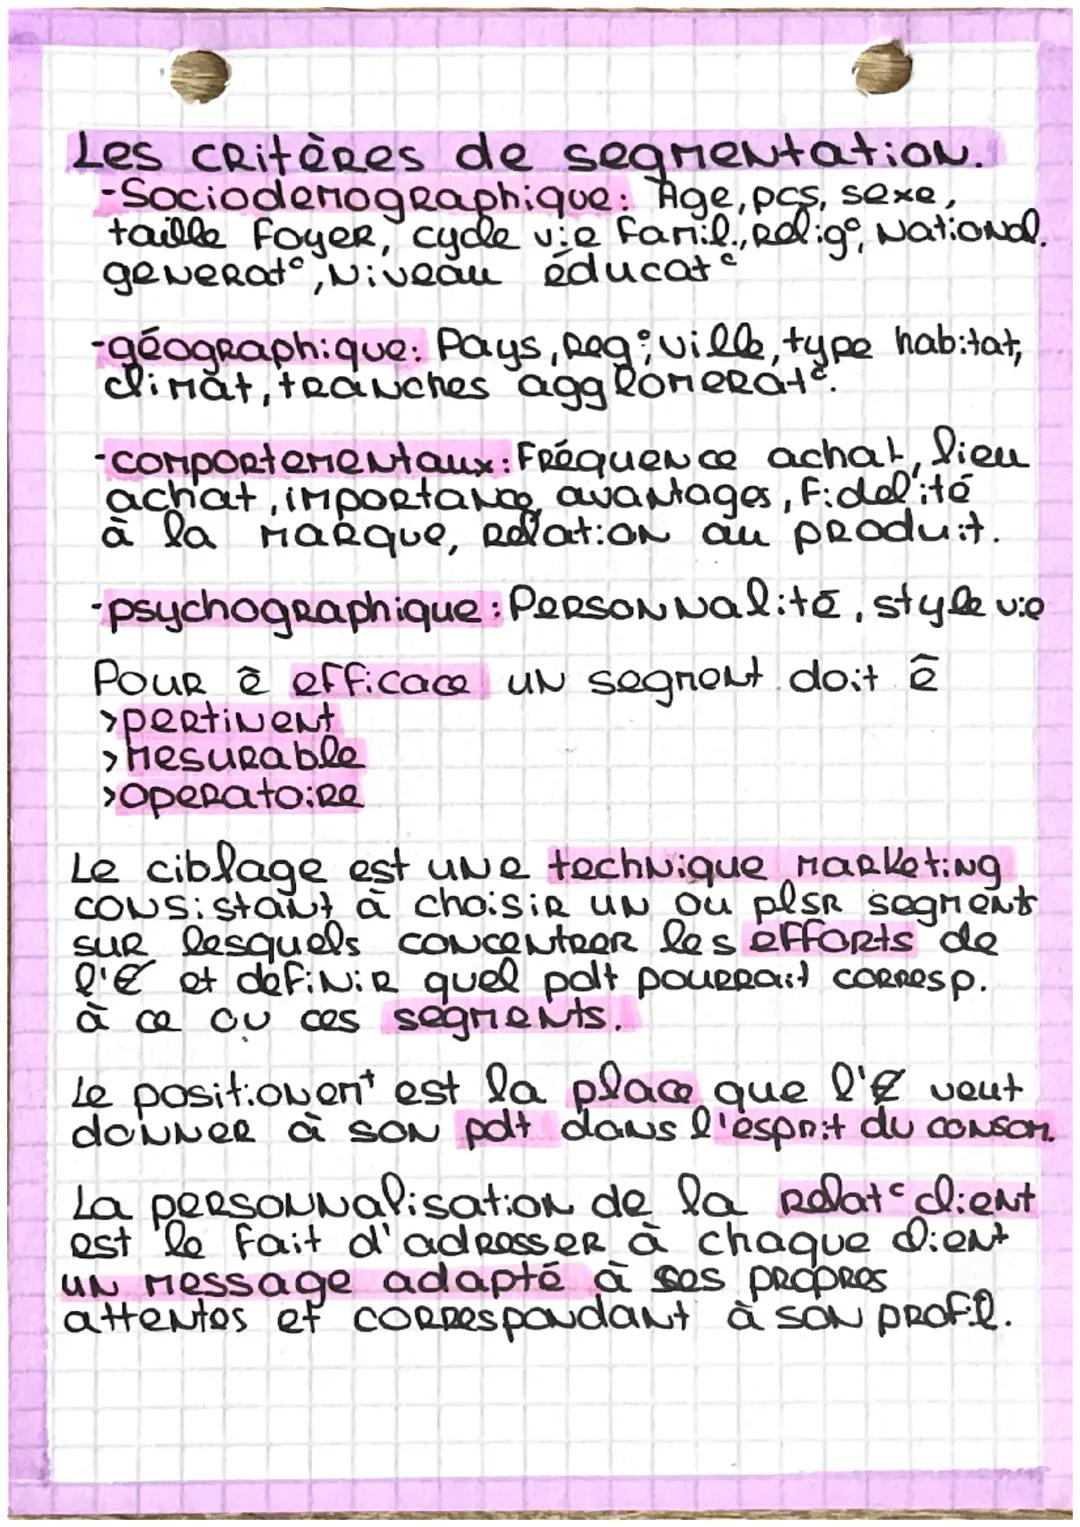 Les critères de segmentation.
-Sociodemographique: Age, pcs, sexe,
taille foyer, cycle vie famil., relig°, National.
generat°, Niveau éducat°
-géographique: Pays, Reg°, ville, type habitat,
climat, tranches agglomerat°.
-comportementaux: Fréquence achat, lieu
achat, importance, avantages, fidelité
à la marque, relation au produit.
-psychographique: Personnalité, style vie
Pour ê efficace un segment doit ê
>pertinent
>mesurable
>operatoire
Le ciblage est une technique marketing
consistant à choisir un ou plsr segments
sur lesquels concentrer les efforts de
l'E et definir quel pdt pourrait corresp.
à ce ou ces segments.
Le positionemt est la place que l'E veut
donner à son pdt dans l'esprit du consom.
La personnalisation de la relat° client
est le fait d'adresser à chaque client
un message adapté à ses propres
attentes et correspondant à son profil.